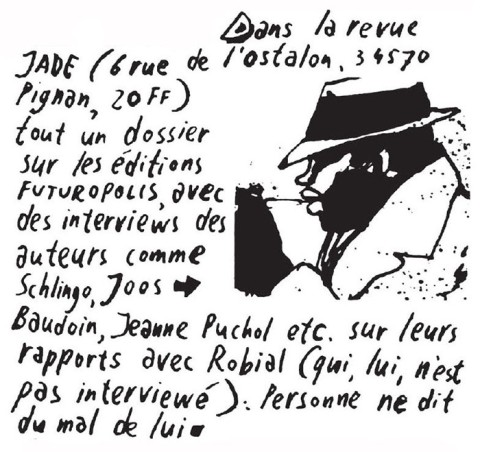 Dans la revue
JADE (6 rue de l'ostalon, 34570
Pignan, 20FF)
tout un dossier
sur les éditions
FUTUROPOLIS, avec
des interviews des
auteurs comme
Schlingo, Joos ➡
Baudoin, Jeanne Puchol etc. sur leurs
rapports avec Robial (qui, lui, n'est
pas interviewé). Personne ne dit
du mal de lui.